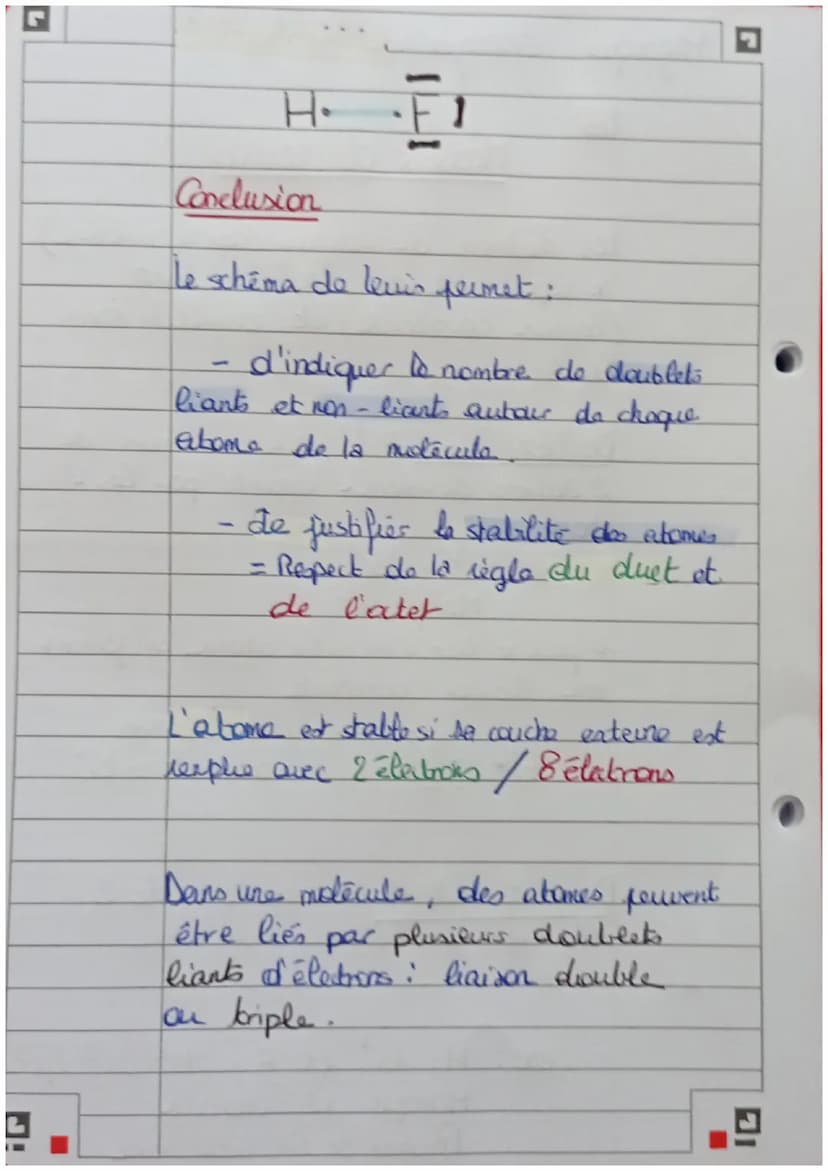 ...
H. — . F
Conclusion
Le schéma de lewis permet :
- d'indiquer le nombre de doublets
liants et non-liants autour de chaque
atome de la molécule.
- de justifier la stabilité des atomes
= Respect de la règle du duet et
de l'octet
L'atome est stable si sa couche externe est
remplie avec 2 électrons / 8 électrons
Dans une molécule, des atomes peuvent
être liés par plusieurs doublets
liants d'électrons : liaison double
ou triple.